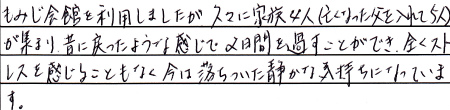 もみじ会館を利用しましたが久々に家族4人(亡くなった父を入れて5人)
が集まり、昔に戻ったような感じで2日間を過すことができ、全くスト
レスを感じることもなく今は落ちついた静かな気持ちになっていま
す。